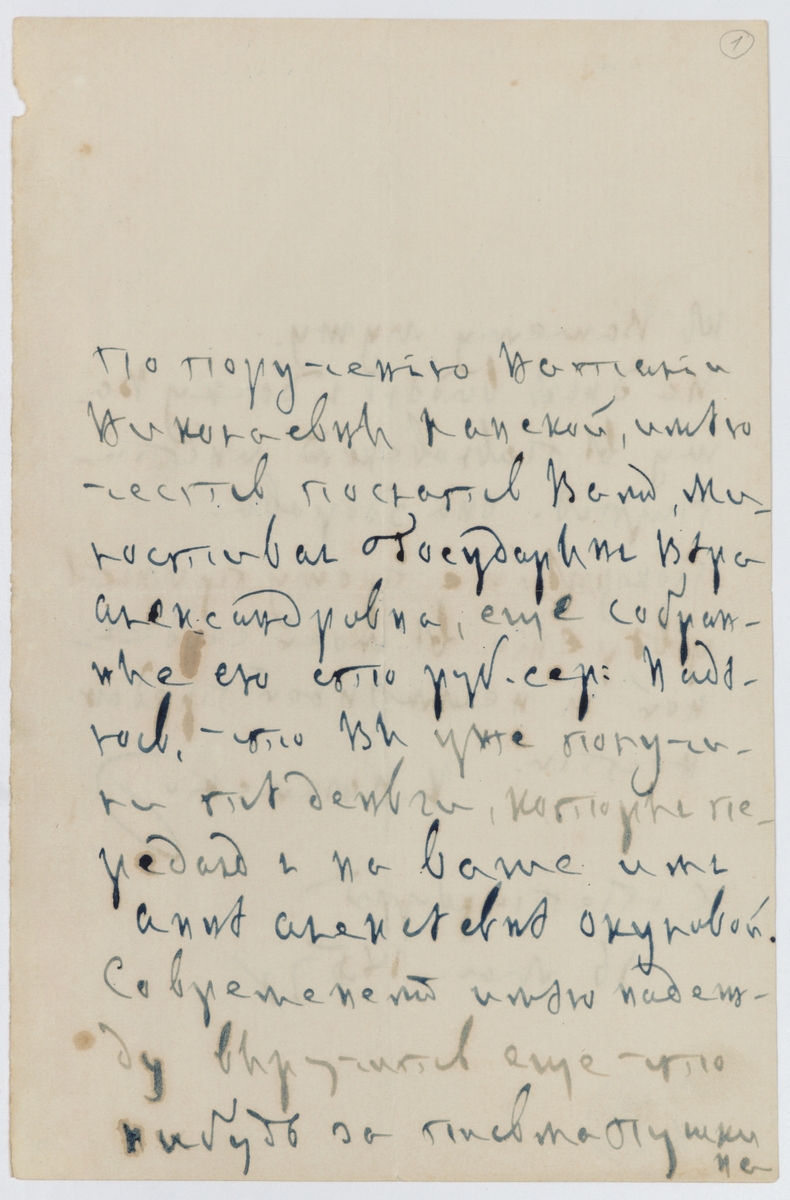 1
По порученiю Наталiи
Николаевны Ланской, имѣю
честь послать Вамъ, Ми-
лостивая Государыня Вѣра
Александровна, еще собран-
ные ею сто руб. сер: Надѣ-
юсь, что Вы уже получи-
ли тѣ деньги, которыя пе-
редалъ я на ваше имя
Аннѣ Алексѣевнѣ Окуловой.
Современемъ имѣю надеж-
ду выручить еще что
нибудь за письма Пушки
на